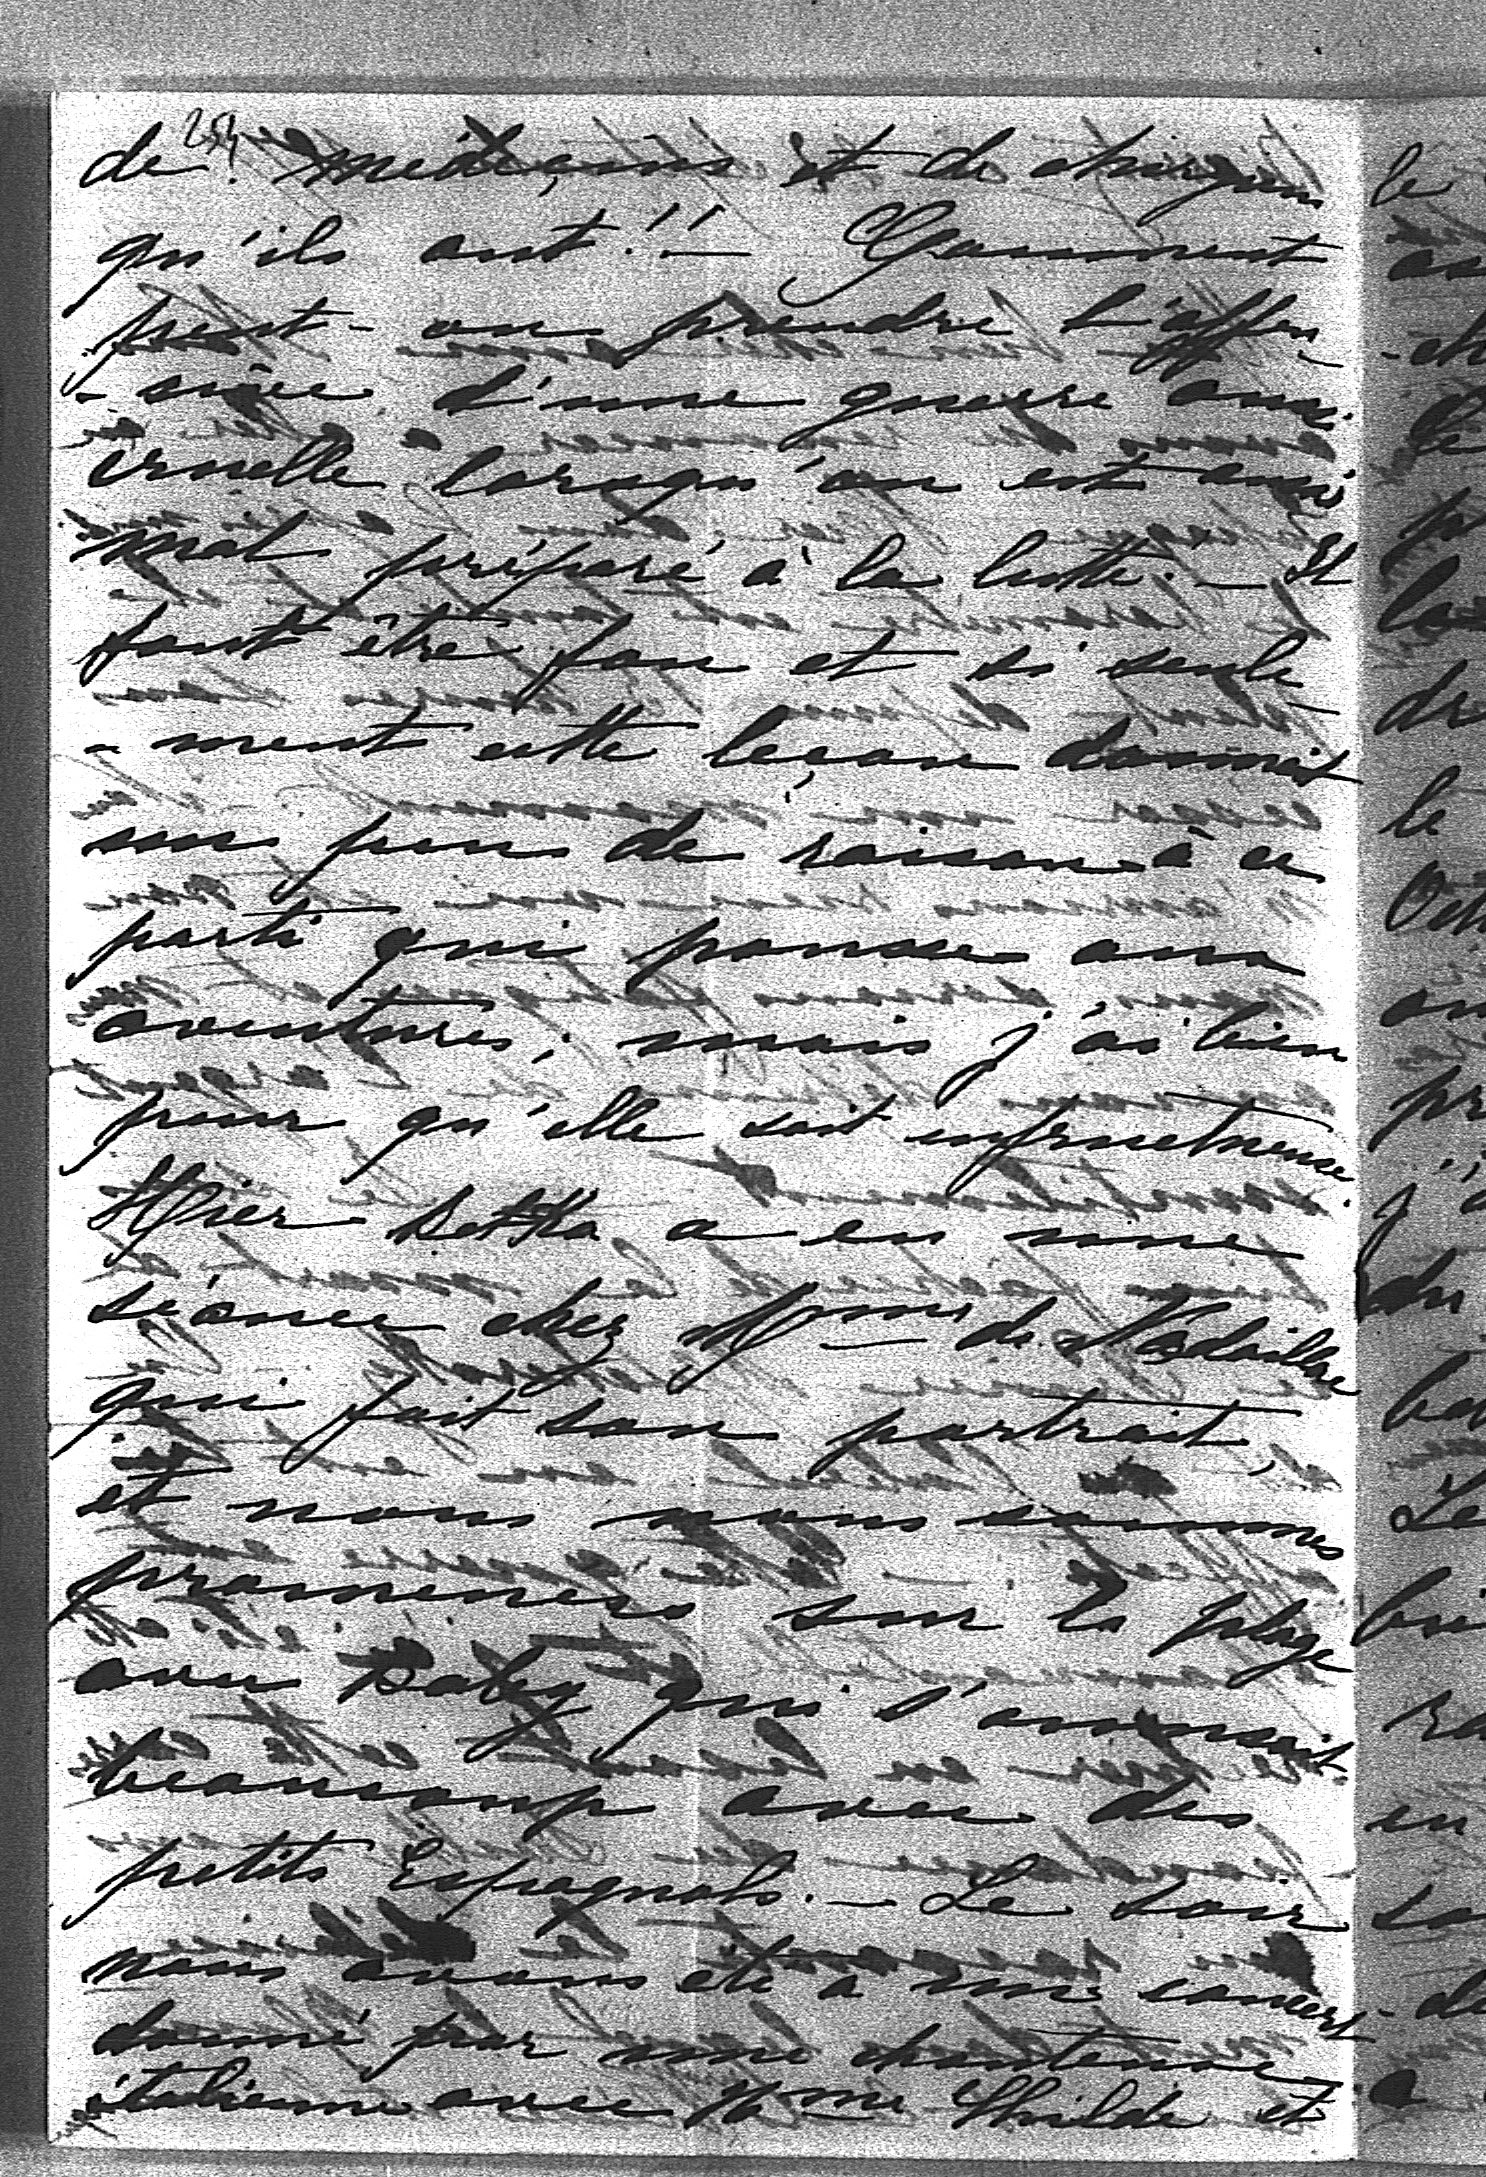 254
de médeçins et de chirurgiens
qu'ils ont!! — Comment
peut-on prendre l'offen-
-sive d'une guerre aussi
cruelle lorsqu'on est aussi
mal préparé à la lutte. — Il
faut être fou et si seule-
-ment cette leçon donnait
un peu de raison à ce
parti qui pousse aux
aventures; mais j'ai bien
peur qu'elle soit infructueuse.
Hier Betka a eu une
séance chez Mme de
qui fait son portrait,
et nous nous sommes
promenés sur la plage
avec Baby qui s'amusait
beaucoup avec des
petits Espagnols. — Le soir
nous avons été à un concert
donné par une chanteuse
italienne avec Mme et